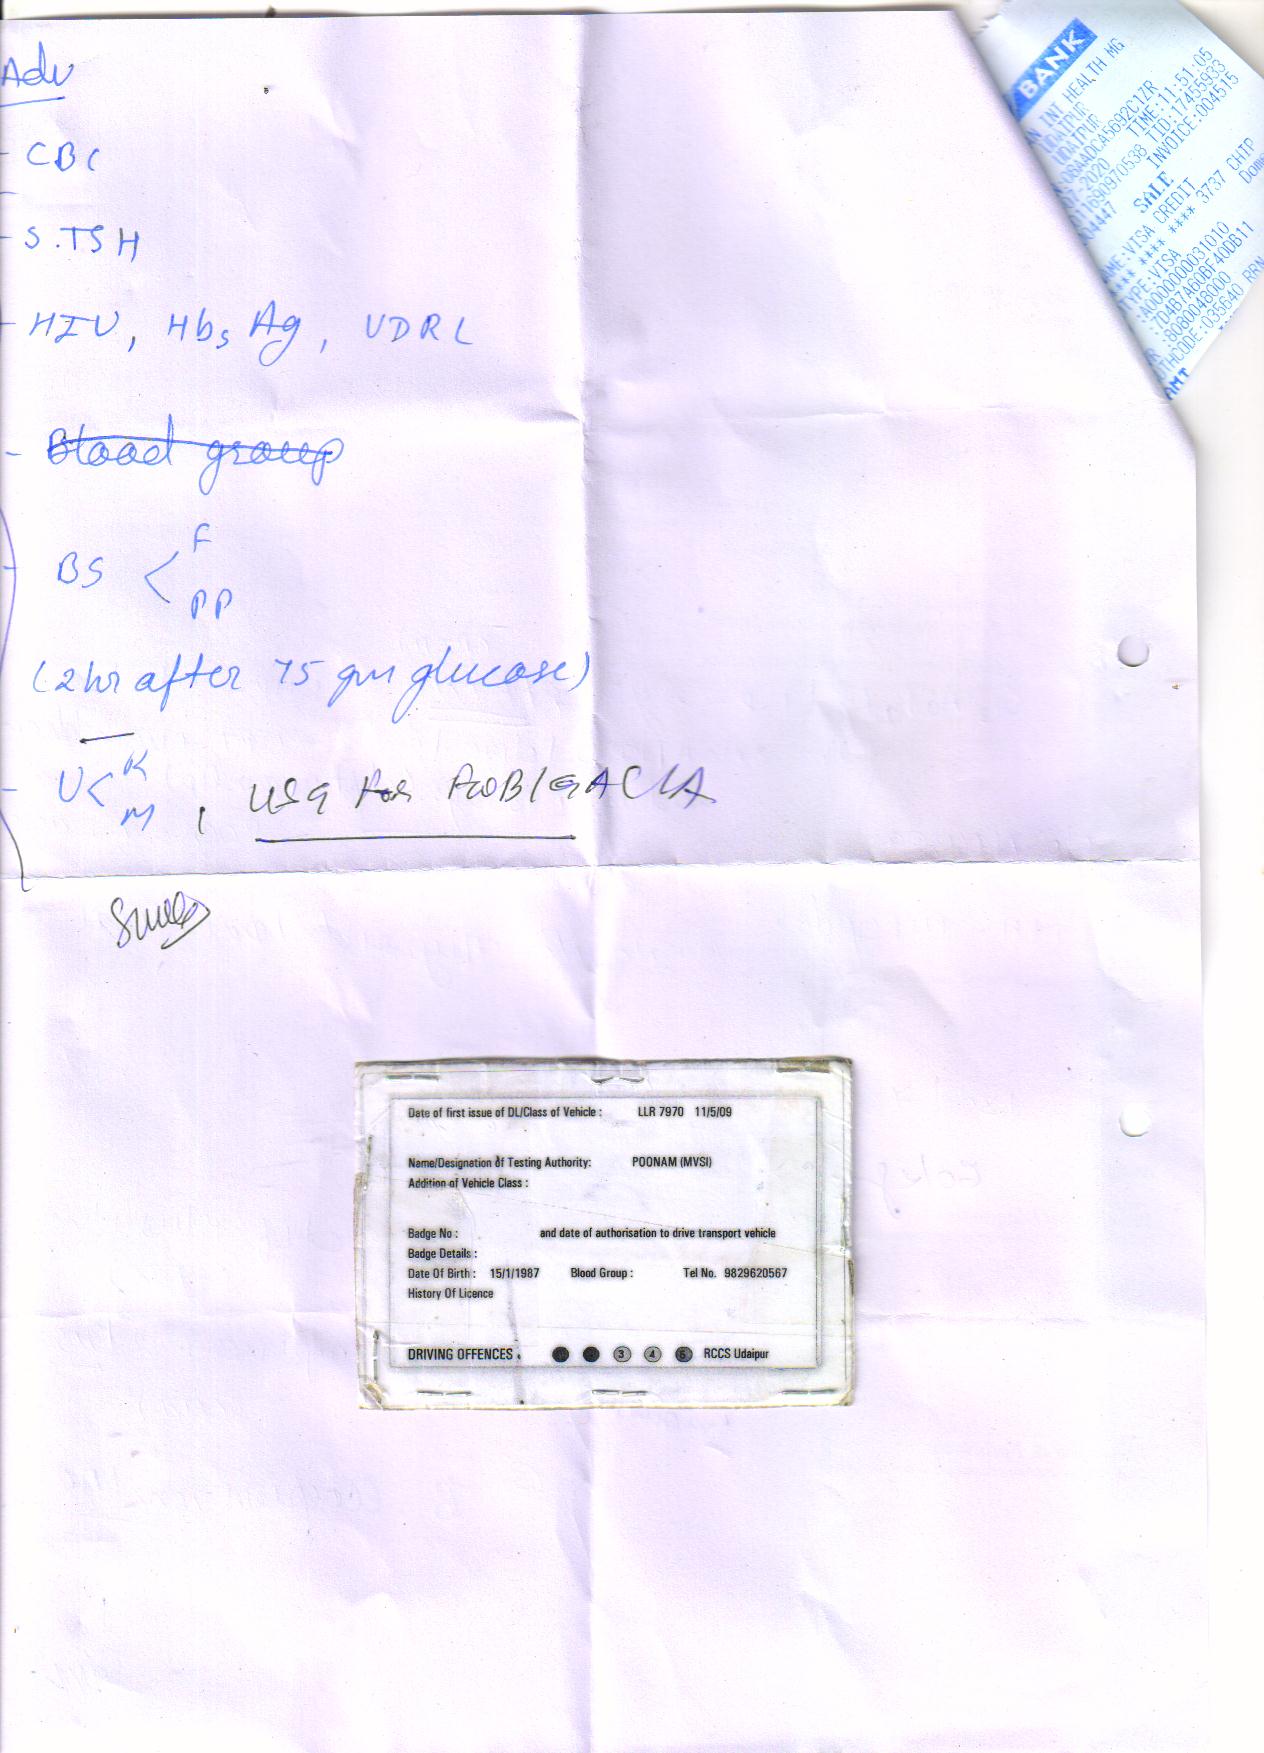 Adv
- CBC
- S.TSH
- HIV, HbsAg, VDRL
- Blood group
- BS < F
PP
(2hr after 75 gm glucose)
- U < K
M , USG for FWB/GA
BANK
INT HEALTH MG
UDAIPUR
UDAIPUR
08AADCA5692C1ZR
2020 TIME:11:51:05
TID:17455933
INVOICE:004515
SALE
VISA CREDIT
**** **** 3737 CHIP
TYPE:VISA
:A0000000031010
:8080048000
CODE:035640 RRN
AMT
Date of first issue of DL/Class of Vehicle : LLR 7970 11/5/09
Name/Designation of Testing Authority: POONAM (MVSI)
Addition of Vehicle Class :
Badge No : and date of authorisation to drive transport vehicle
Badge Details :
Date Of Birth : 15/1/1987 Blood Group : Tel No. 9829620567
History Of Licence
DRIVING OFFENCES 3 4 5 RCCS Udaipur